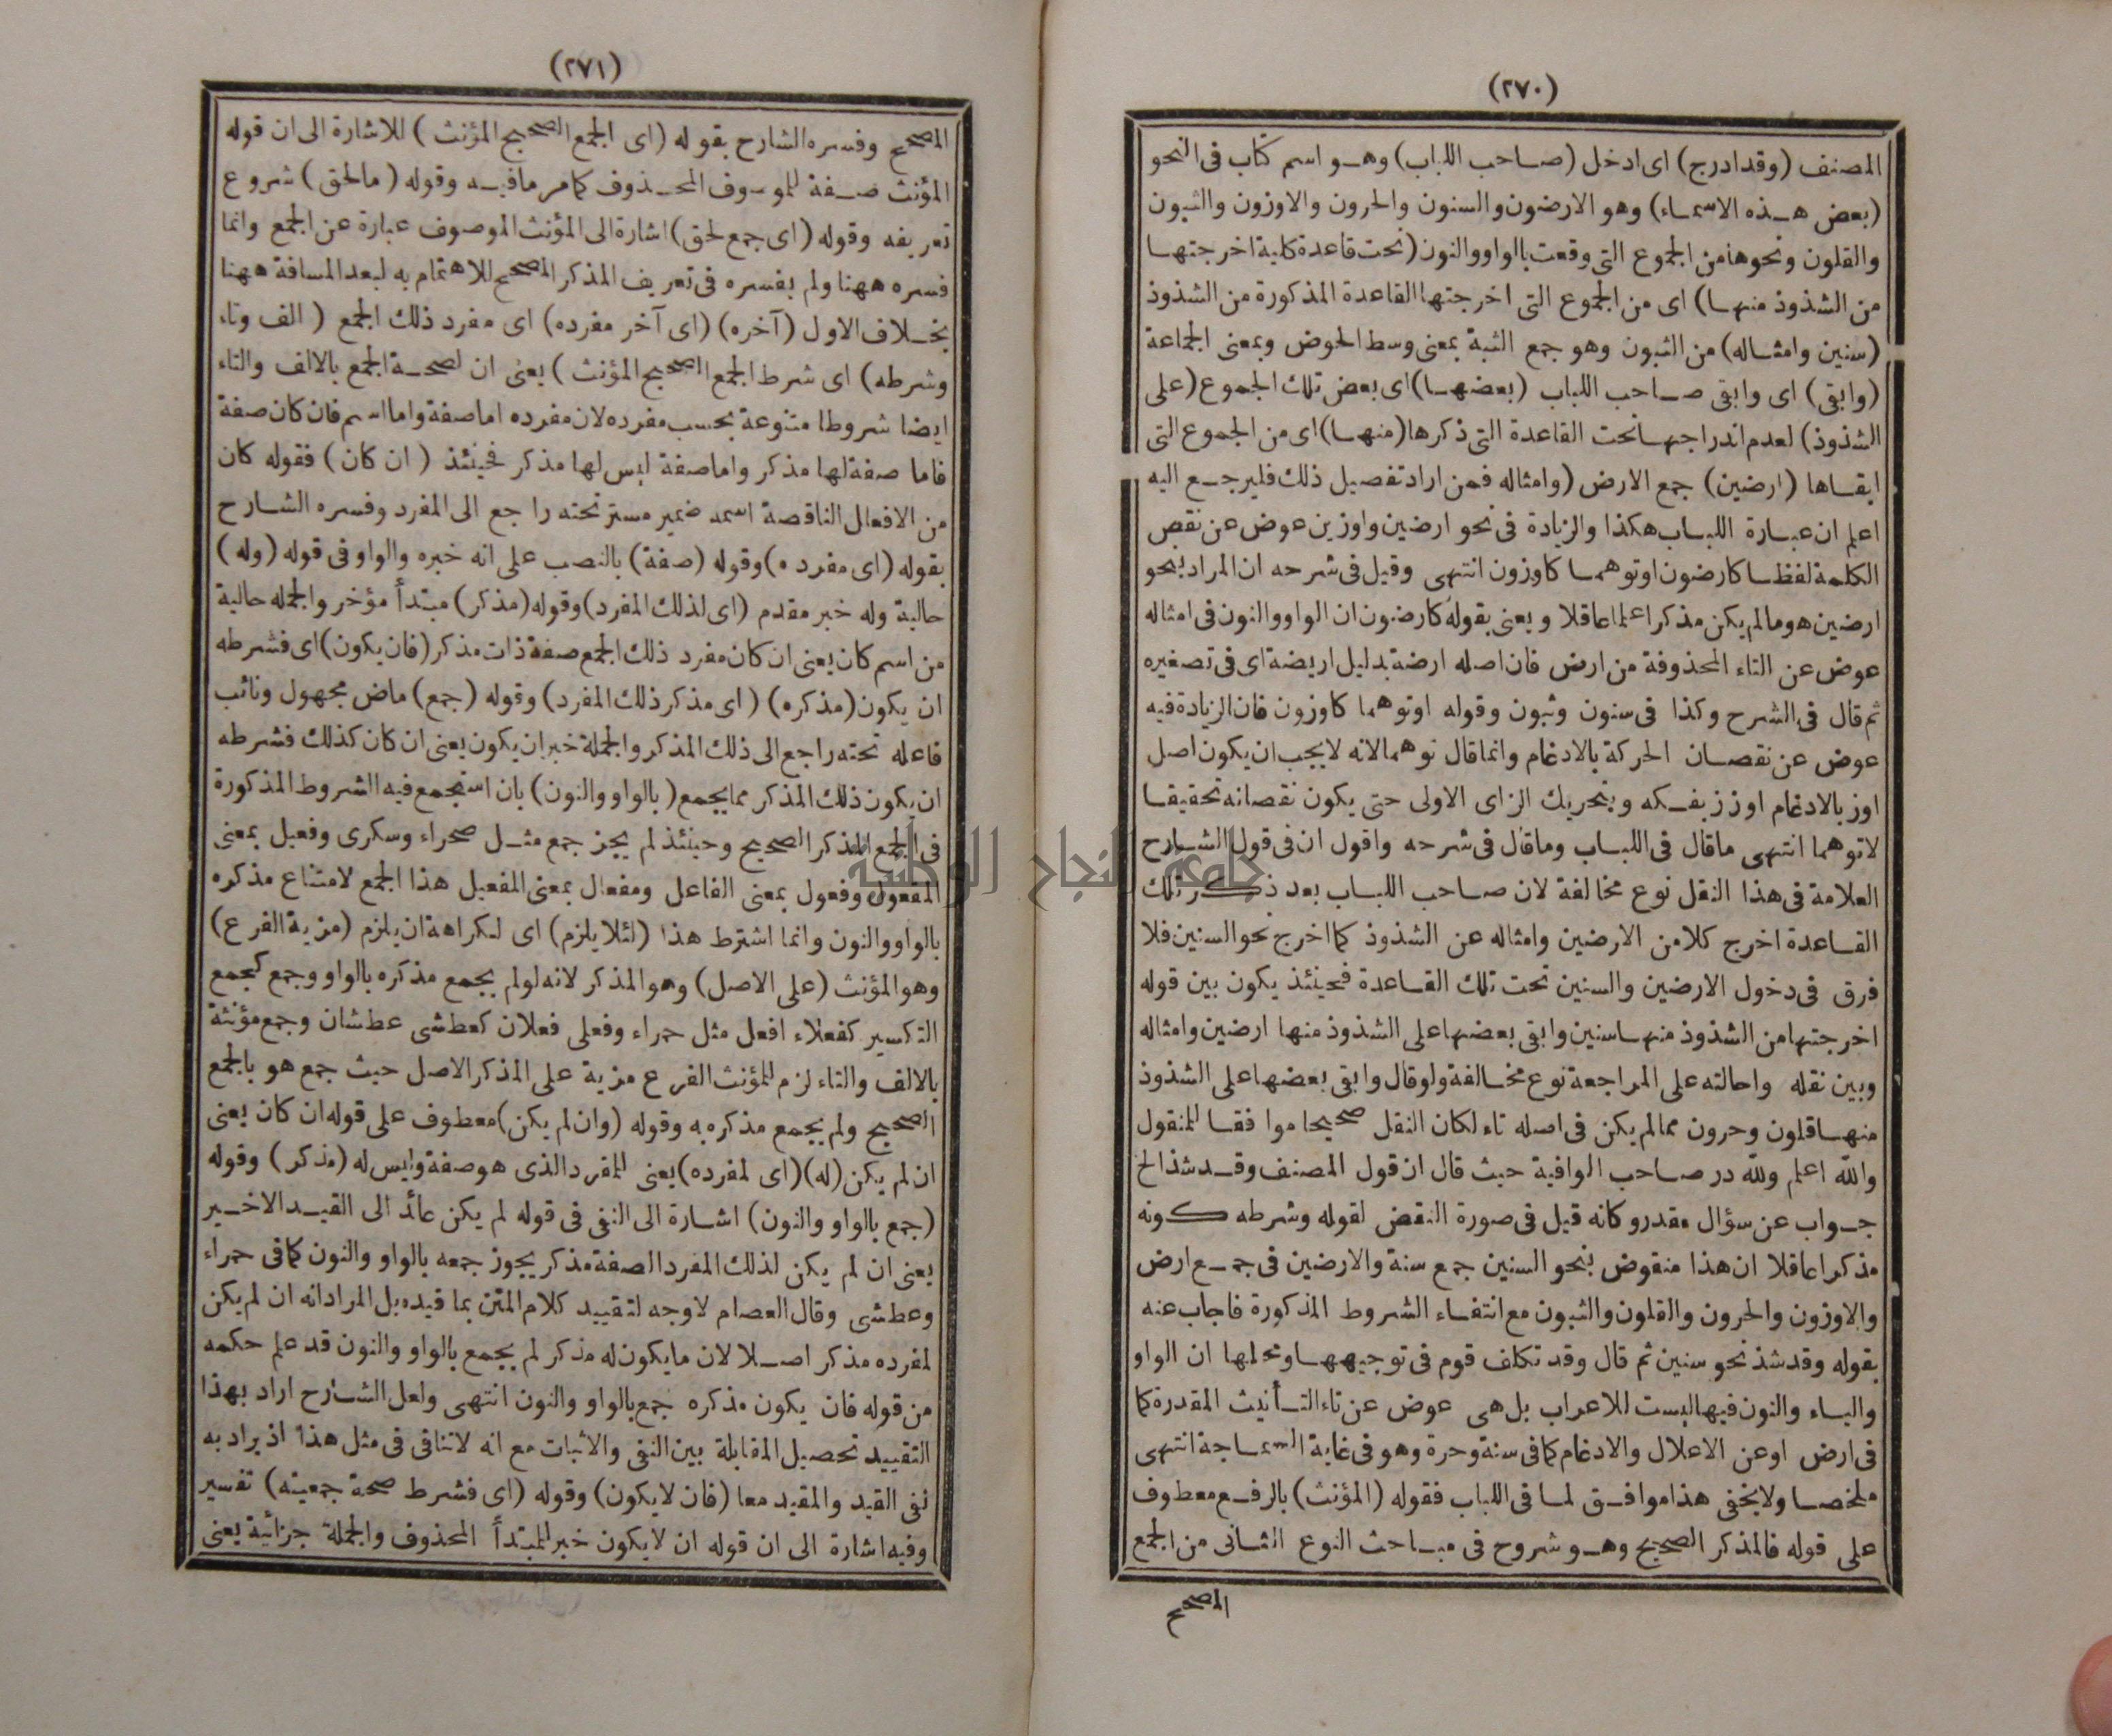 (٢٧٠)
المصنف (وقد ادرج) اى ادخل (صاحب اللباب) وهو اسم كتاب فى النحو
(بعض هذه الاسماء) وهو الارضون والسنون والحرون والاوزون والثبون
والقلون ونحوها من الجموع التى وقعت بالواو والنون (تحت قاعدة كلية اخرجتها
من الشذوذ منها) اى من الجموع التى اخرجتها القاعدة المذكورة من الشذوذ
(سنين وامثاله) من الثبون وهو جمع الثبة بمعنى وسط الحوض وبمعنى الجماعة
(وابقى) اى وابقى صاحب اللباب (بعضها) اى بعض تلك الجموع (على
الشذوذ) لعدم اندراجها تحت القاعدة التى ذكرها (منها) اى من الجموع التى
ابقاها (ارضين) جمع الارض (وامثاله فمن اراد تفصيل ذلك فليرجع اليه
اعلم ان عبارة اللباب هكذا والزيادة فى نحو ارضين واوزين عوض عن نقص
الكلمة لفظا كارضون او توهما كاوزون انتهى وقيل فى شرحه ان المراد بنحو
ارضين هو مالم يكن مذكرا علما عاقلا ويعنى بقوله كارضون ان الواو والنون فى امثاله
عوض عن التاء المحذوفة من ارض فان اصله ارضة بدليل اريضة اى فى تصغيره
ثم قال فى الشرح وكذا فى سنون وثبون وقوله او توهما كاوزون فان الزيادة فيه
عوض عن نقصان الحركة بالادغام وانما قال توهما لانه لا يجب ان يكون اصل
اوز بالادغام اوزز بفكه وبتحريك الزاى الاولى حتى يكون نقصانه تحقيقا
لا توهما انتهى ماقال فى اللباب وماقال فى شرحه واقول ان فى قول الشارح
العلامة فى هذا النقل نوع مخالفة لان صاحب اللباب بعد ذكر تلك
القاعدة اخرج كلا من الارضين وامثاله عن الشذوذ كما اخرج نحو السنين فلا
فرق فى دخول الارضين والسنين تحت تلك القاعدة فحينئذ يكون بين قوله
اخرجتها من الشذوذ منها سنين وابقى بعضها على الشذوذ منها ارضين وامثاله
وبين نقله واحالته على المراجعة نوع مخالفة ولو قال وابقى بعضها على الشذوذ
منها قلون وحرون مما لم يكن فى اصله تاء لكان النقل صحيحا موافقا للمنقول
والله اعلم ولله در صاحب الوافية حيث قال ان قول المصنف وقد شذ الخ
جواب عن سؤال مقدر وكانه قيل فى صورة النقض لقوله وشرطه كونه
مذكرا عاقلا ان هذا منقوض بنحو السنين جمع سنة والارضين فى جمع ارض
والاوزون والحرون والقلون والثبون مع انتفاء الشروط المذكورة فاجاب عنه
بقوله وقد شذ نحو سنين ثم قال وقد تكلف قوم فى توجيهها وتحلها ان الواو
والياء والنون فيها ليست للاعراب بل هى عوض عن تاء التأنيث المقدرة كما
فى ارض او عن الاعلال والادغام كما فى سنة وحرة وهو فى غاية السماجة انتهى
ملخصا ولا يخفى هذا موافق لما فى اللباب فقوله (المؤنث) بالرفع معطوف
على قوله فالمذكر الصحيح وهو شروح فى مباحث النوع الثانى من الجمع
المصحح
(٢٧١)
المصحح وفسره الشارح بقوله (اى الجمع الصحيح المؤنث) للاشارة الى ان قوله
المؤنث صفة للموسوف المحذوف كما مر مافيه وقوله (مالحق) شروع
تعريفه وقوله (اى جمع لحق) اشارة الى المؤنث الموصوف عبارة عن الجمع وانما
فسره ههنا ولم يفسره فى تعريف المذكر المصحح للاهتمام به لبعد المسافة ههنا
بخلاف الاول (آخره) (اى آخر مفرده) اى مفرد ذلك الجمع (الف وتاء
وشرطه) اى شرط الجمع الصحيح المؤنث) يعنى ان لصحة الجمع بالالف والتاء
ايضا شروطا متنوعة بحسب مفرده لان مفرده اما صفة واما اسم فان كان صفة
فاما صفة لها مذكر واما صفة ليس لها مذكر فحينئذ (ان كان) فقوله كان
من الافعال الناقصة اسمه ضمير مستتر تحته راجع الى المفرد وفسره الشارح
بقوله (اى مفرده) وقوله (صفة) بالنصب على انه خبره والواو فى قوله (وله)
حالية وله خبر مقدم (اى لذلك المفرد) وقوله (مذكر) مبتدأ مؤخر والجمله حالية
من اسم كان يعنى ان كان مفرد ذلك الجمع صفة ذات مذكر (فان يكون) اى فشرطه
ان يكون (مذكره) (اى مذكر ذلك المفرد) وقوله (جمع) ماض مجهول ونائب
فاعله تحته راجع الى ذلك المذكر والجملة خبر ان يكون يعنى ان كان كذلك فشرطه
ان يكون ذلك المذكر مما يجمع (بالواو والنون) بان استجمع فيه الشروط المذكورة
فى الجمع المذكر الصحيح وحينئذ لم يجز جمع مثل صحراء وسكرى وفعيل بمعنى
المفعول وفعول بمعنى الفاعل ومفعال بمعنى المفعيل هذا الجمع لامتناع مذكره
بالواو والنون وانما اشترط هذا (لئلا يلزم) اى لكراهة ان يلزم (مزية الفرع)
وهو المؤنث (على الاصل) وهو المذكر لانه لو لم يجمع مذكره بالواو وجمع كجمع
التكسير كفعلاء افعل مثل حمراء وفعلى فعلان كعطشى عطشان وجمع مؤنثة
بالالف والتاء لزم للمؤنث الفرع مزية على المذكر الاصل حيث جمع هو بالجمع
الصحيح ولم يجمع مذكره به وقوله (وان لم يكن) معطوف على قوله ان كان يعنى
ان لم يكن (له) (اى لمفرده) يعنى للمفرد الذى هو صفة وليس له (مذكر) وقوله
(جمع بالواو والنون) اشارة الى النفى فى قوله لم يكن عائد الى القيد الاخير
يعنى ان لم يكن لذلك المفرد الصفة مذكر يجوز جمعه بالواو والنون كما فى حمراء
وعطشى وقال العصام لاوجه لتقييد كلام المتن بما قيده بل المراد انه ان لم يكن
لمفرده مذكر اصلا لان مايكون له مذكر لم يجمع بالواو والنون قد علم حكمه
من قوله فان يكون مذكره جمع بالواو والنون انتهى ولعل الشارح اراد بهذا
التقييد تحصيل المقابلة بين النفى والاثبات مع انه لاتنافى فى مثل هذا اذ يراد به
نفى القيد والمقيد معا (فان لايكون) وقوله (اى فشرط صحة جمعيته) تفسير
وفيه اشارة الى ان قوله ان لايكون خبر للمبتدأ المحذوف والجملة جزائية يعنى
جامعة النجاح الوطنية